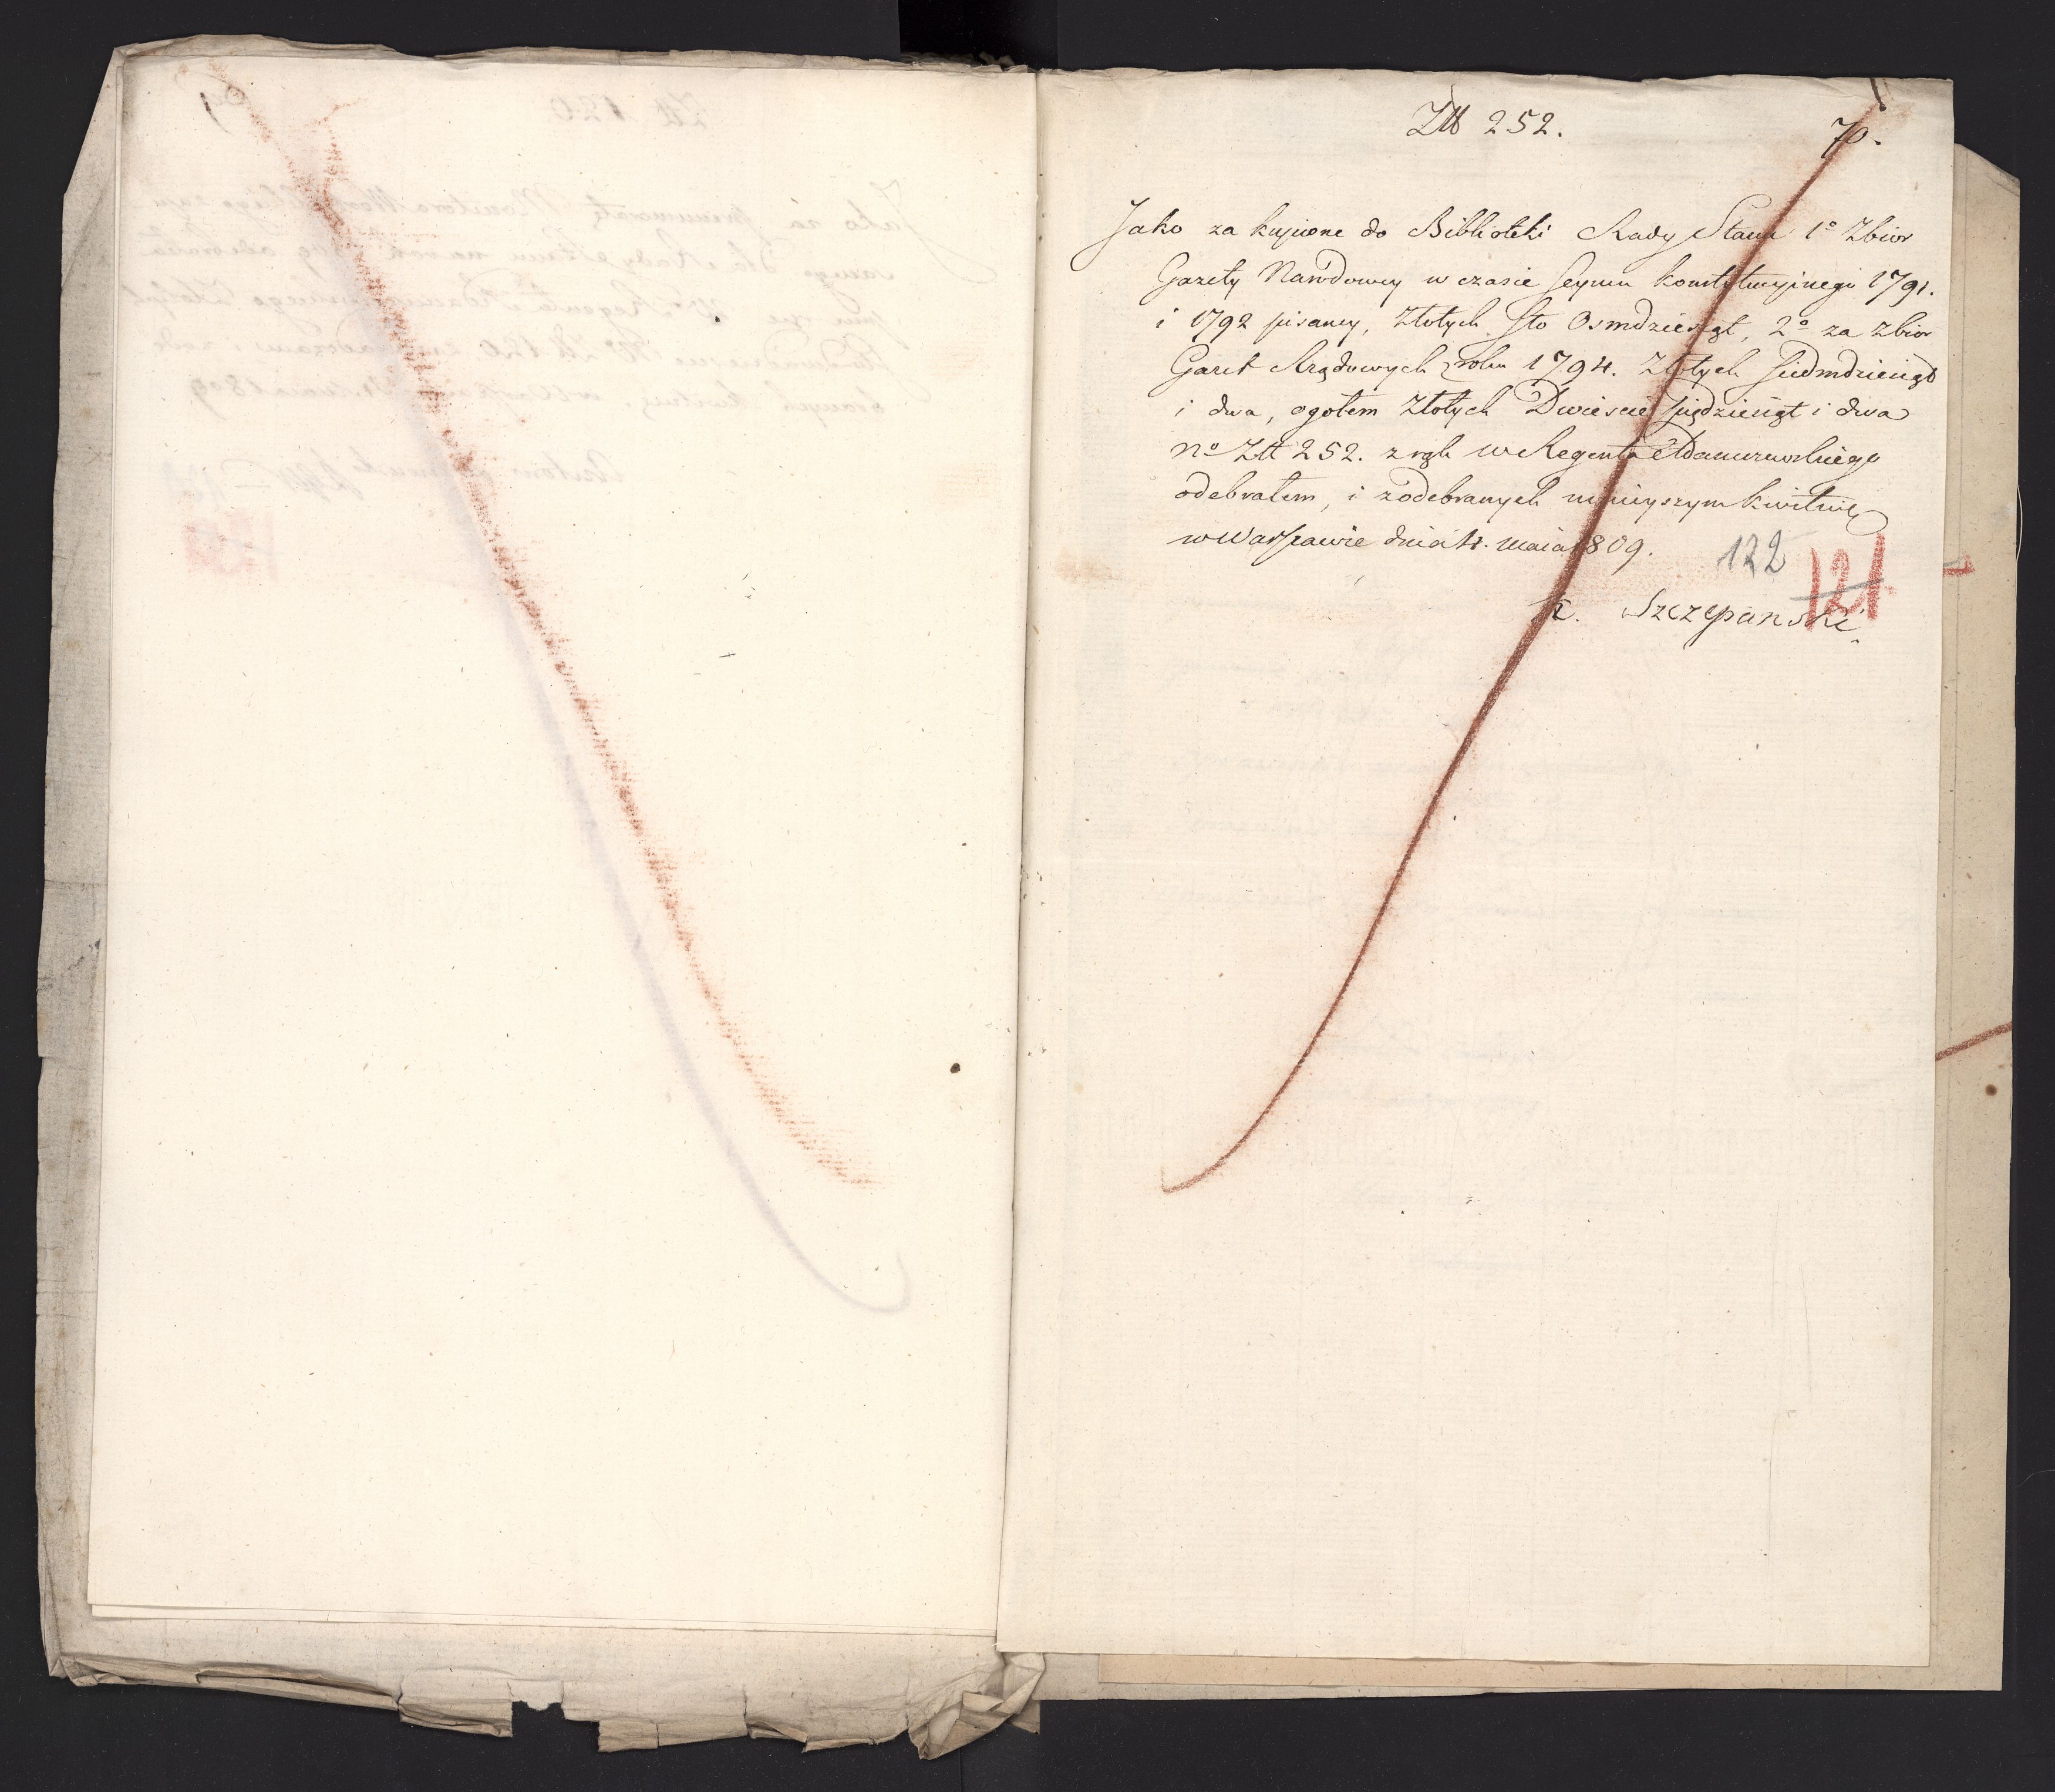 Złł 252.
70.
Jako za kupione do Biblioteki Rady Stanu 1º Zbior
Gazety Narodowey w czasie Seymu konstytucyjnego 1791.
i 1792 pisaney, Złotych Sto Osmdziesiąt, 2º za Zbior
Gazet Rządowych roku 1794. Złotych Siedmdziesiąt
i dwa, ogołem Złotych Dwieście piędziesiąt i dwa
Nº Złł 252. z rąk W Regenta
odebrałem, i z odebranych ninieyszym kwituię
w Warszawie dnia 4. Maia 1809.
122
121
Szczepański